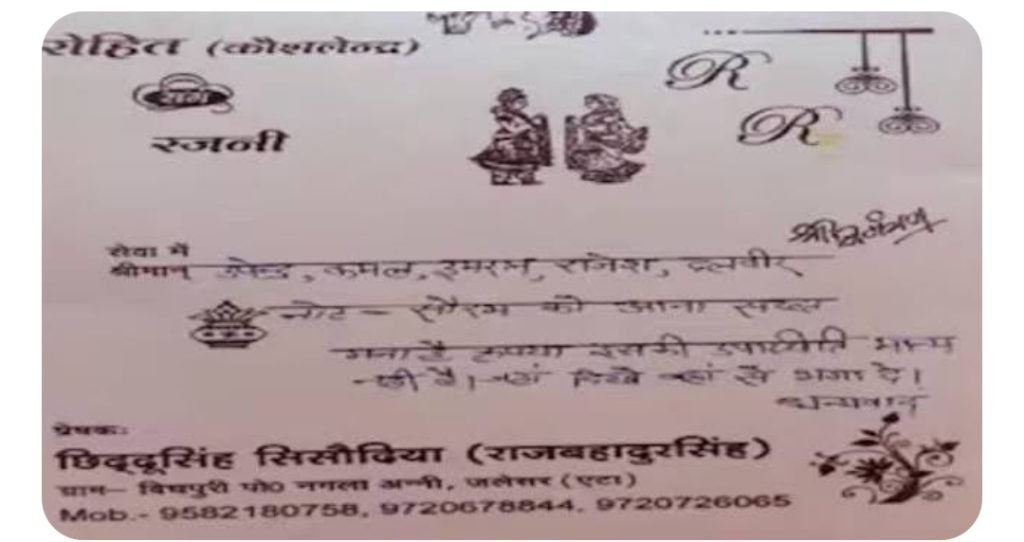 रोहित (कौशलेन्द्र)
संग
रजनी
R
R
श्री निमंत्रण
सेवा में
श्रीमान् उपेन्द्र, कमल, इमरान, राजेश, दलवीर
नोट - सौरभ को आना सख्त
मना है कृपया इसकी उपस्थिति मान्य
नही है। जहां दिखे वहां से भगा दे।
धन्यवाद
प्रेषकः
छिद्दूसिंह सिसौदिया (राजबहादुरसिंह)
ग्राम- विधपुरी पो0 नगला अन्नी, जलेसर (एटा)
Mob.- 9582180758, 9720678844, 9720726065